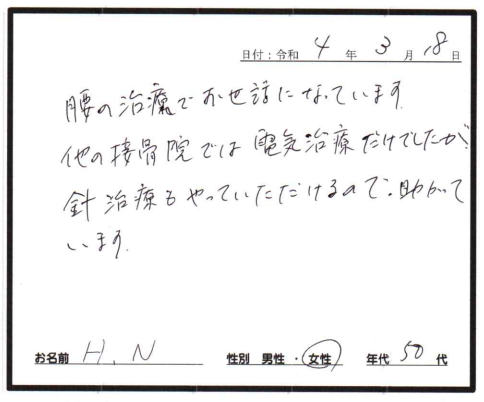 日付:令和 4 年 3 月 18 日
腰の治療でお世話になっています。
他の接骨院では電気治療だけでしたが、
針治療もやっていただけるので、助かって
います。
お名前 H.N 性別 男性・女性 年代 50 代